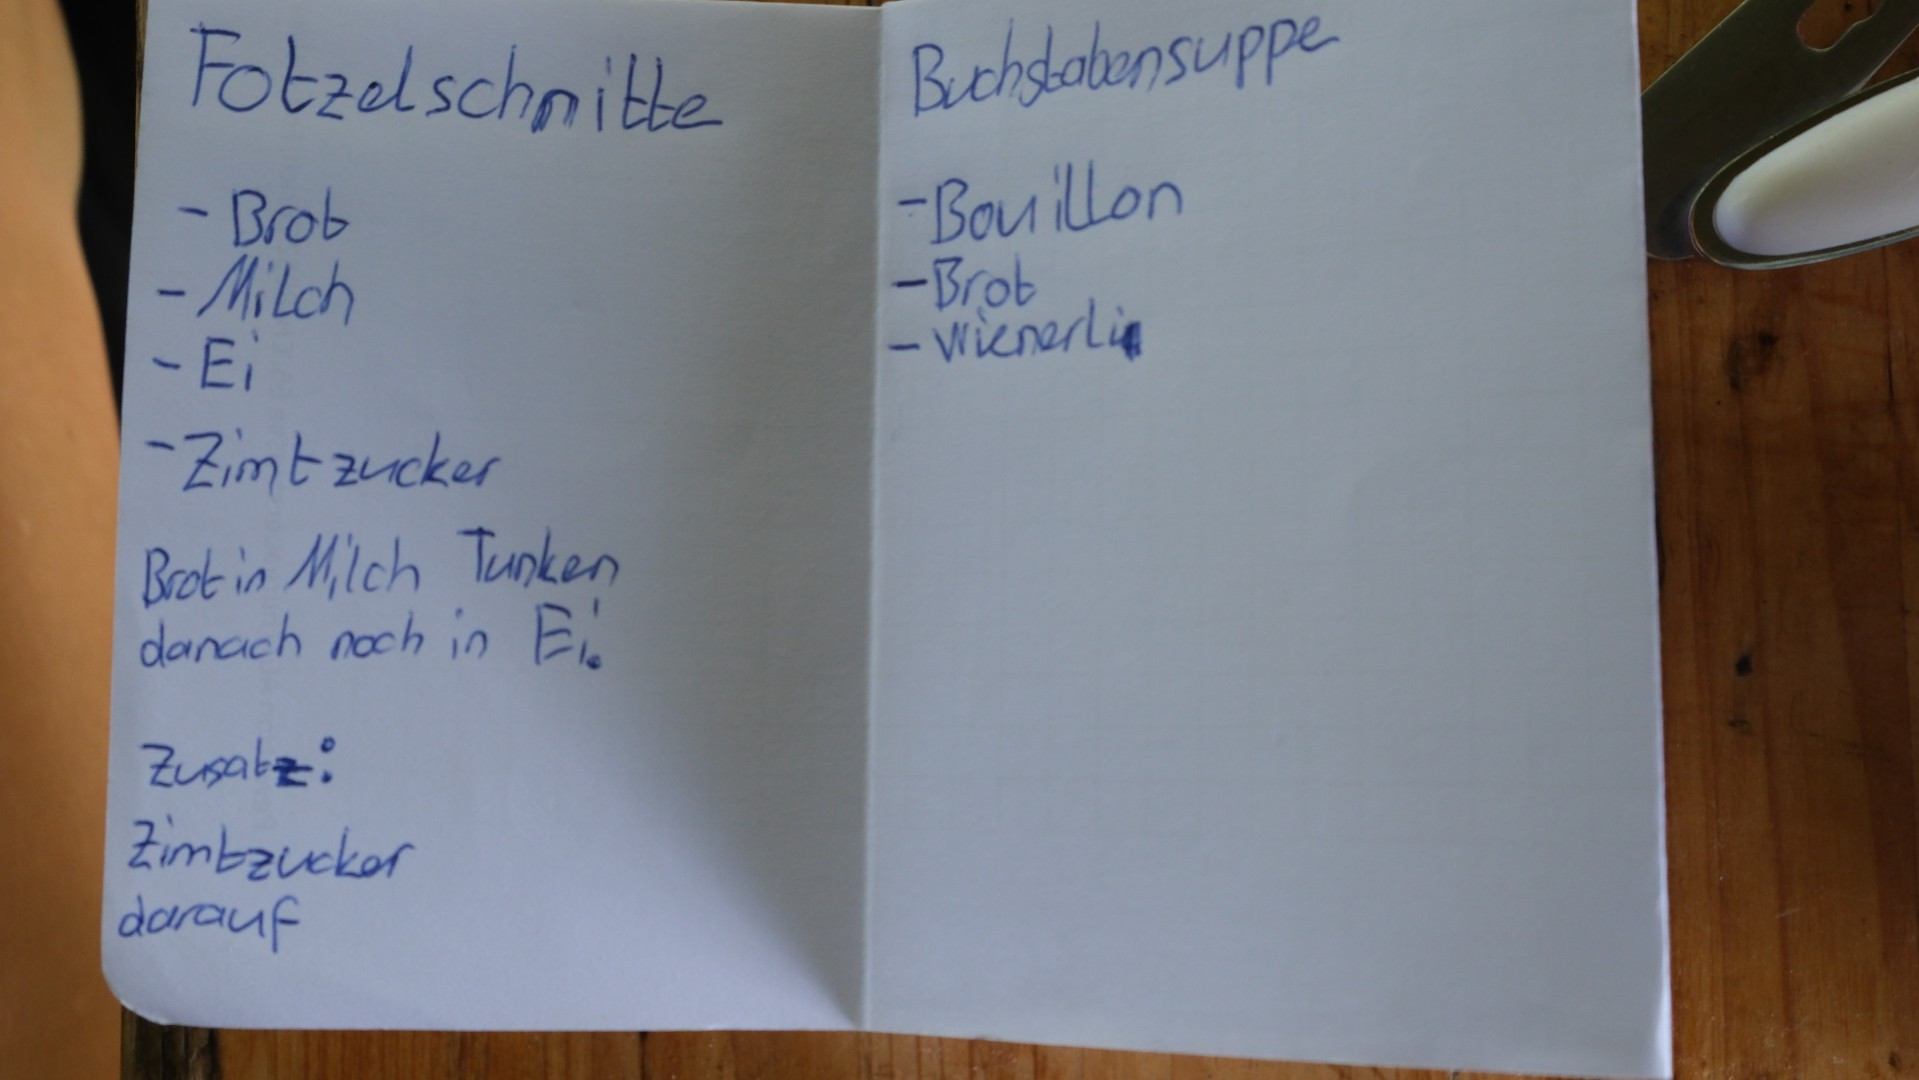 Fotzelschnitte
- Brot
- Milch
- Ei
- Zimtzucker
Brot in Milch Tunken
danach noch in Ei.
Zusatz:
Zimtzucker
darauf
Buchstabensuppe
- Bouillon
- Brot
- Wienerli